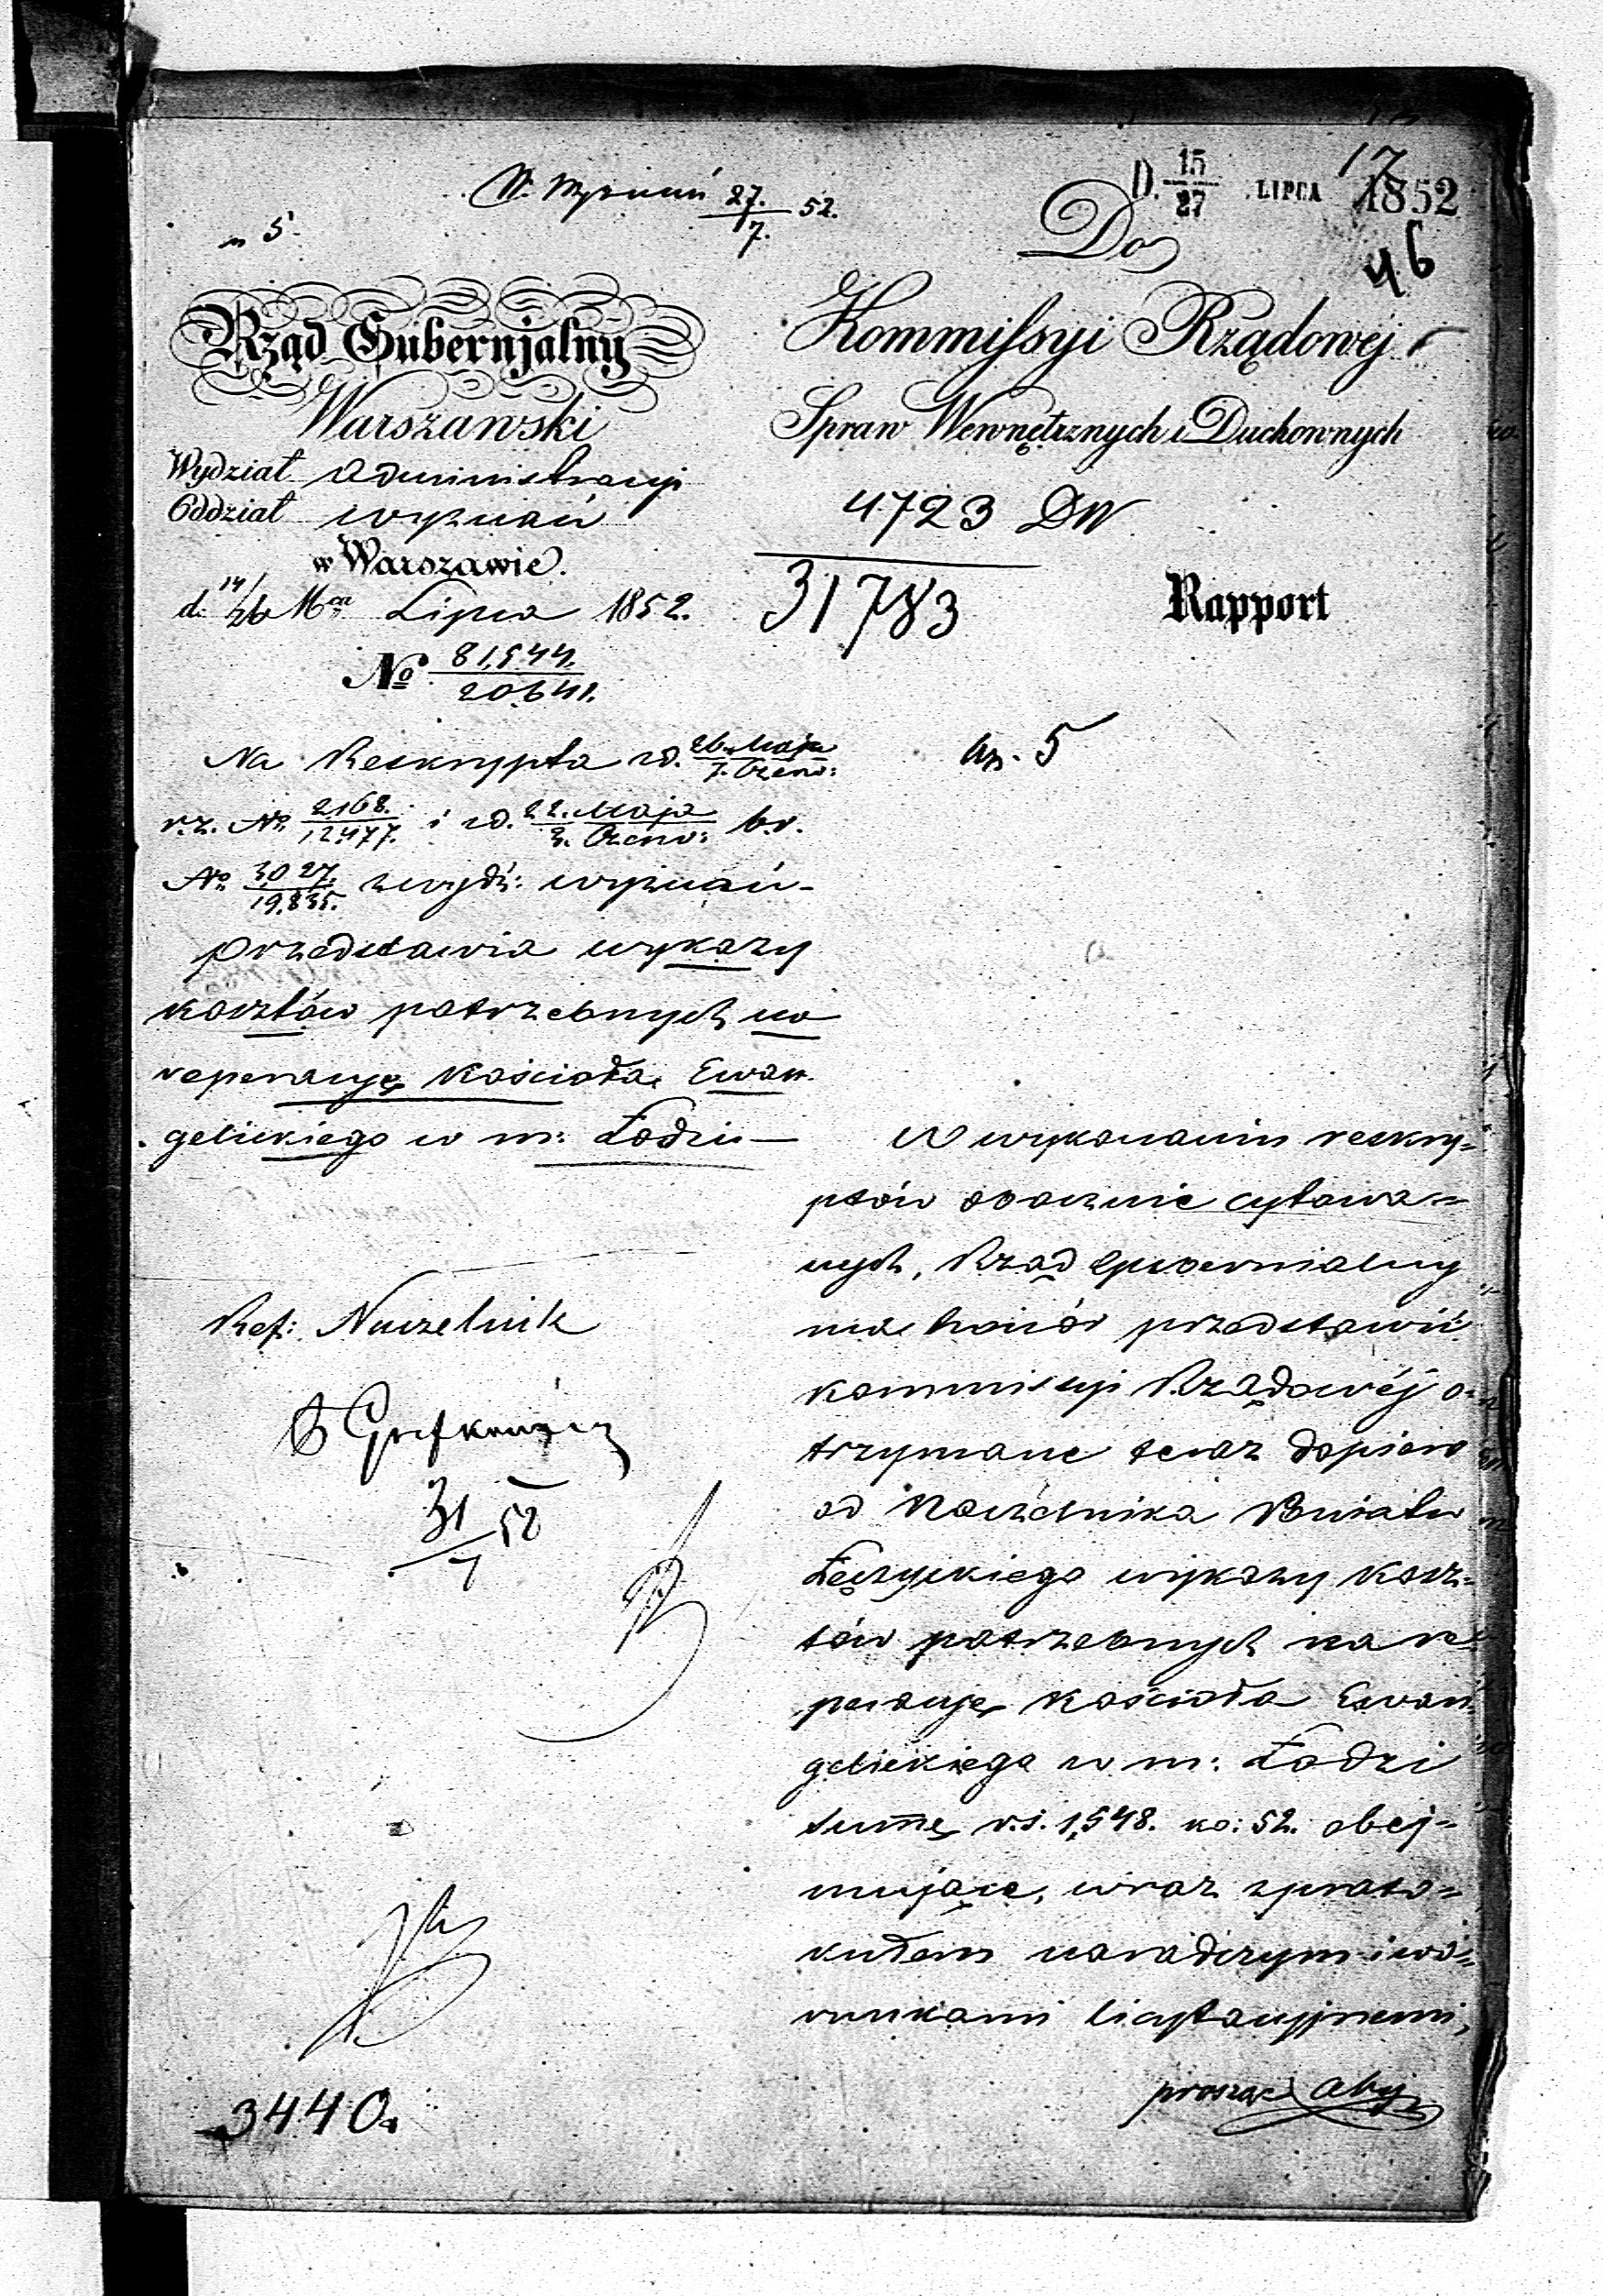 W. Wyznań 27./7. 52.
D. 15/27 LIPCA 1852
17
n 5
Do
46
Rząd Gubernjalny
Warszawski
Wydział Administracyi
Oddział wyznań
w Warszawie.
d. 14/26 Mca Lipca 1852.
No 81,544./20,641.
Kommissyi Rządowéj
Spraw Wewnętrznych i Duchownych
4723 DW
31783
Rapport
Na Reskrypta z d. 26. Maja/7. Czerw:
r. z. No 2168./12477. i z d. 22. Maja/3. Czerw: b. r.
No 3027./19,835. z wydz: wyznań
przedstawia wykazy
kosztów potrzebnych na
reperacyę Kościoła Ewan-
gelickiego w m: Łodzi—
5
W wykonaniu reskry-
ptów obocznie cytowa-
nych, Rząd Gubernialny
ma honor przedstawić
Kommissyi Rządowéj o-
trzymane teraz dopiero
od Naczelnika Powiatu
Łęczyckiego wykazy kosz-
tów potrzebnych na re-
peracyę Kościoła Ewan-
gelickiego w m: Łodzi
summę r.s. 1,548. ko: 52. obej-
mujące, wraz z proto-
kułem naradczym i wa-
runkami licytacyjnemi,
prosząc aby
Ref: Naczelnik
31/7 52
3440.